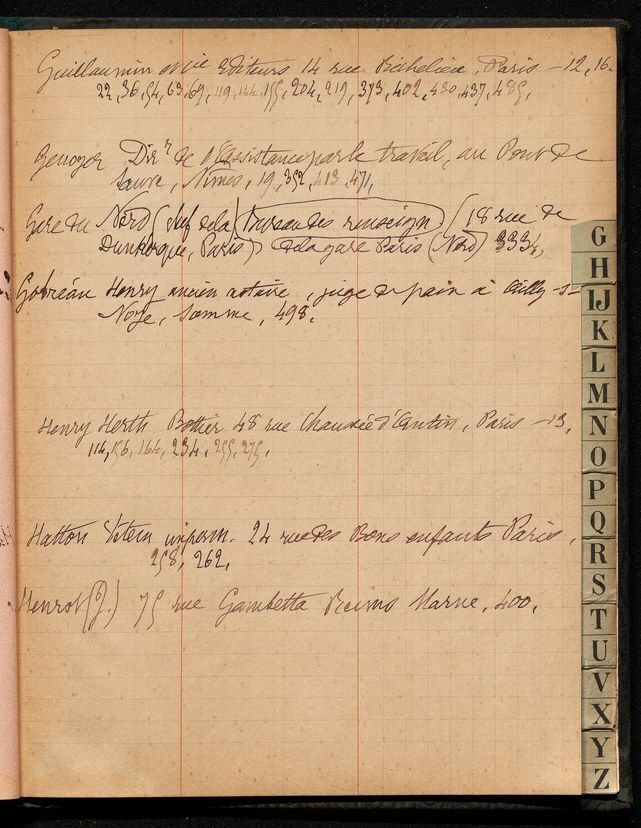 Guillaumin et Cie Editeurs 14 rue Richelieu, Paris - 12, 16.
22, 36, 54, 63, 69, 119, 144, 155, 204, 219, 373, 402, 430, 437, 485,
Dir r de l'Assistance par le travail, au Pont de
Sauve, Nîmes, 19, 352, 413, 471,
Gare du Nord (chef de la) (bureau des renseign) (18 rue de
Dunkerque, Paris) de la gare Paris (Nord) 333,
Henry ancien notaire, juge de paix à Ailly-s-
Noye, Somme, 498.
Henry Herth Bottier 48 rue Chaussée d'Antin, Paris - 13.
114, 156, 164, 234, 255, 275.
Hatton 24 rue des Bons enfants Paris.
258, 262.
Henrot (J.) 75 rue Gambetta Reims Marne. 400.
G
H
IJ
K
L
M
N
O
P
Q
R
S
T
U
V
X
Y
Z